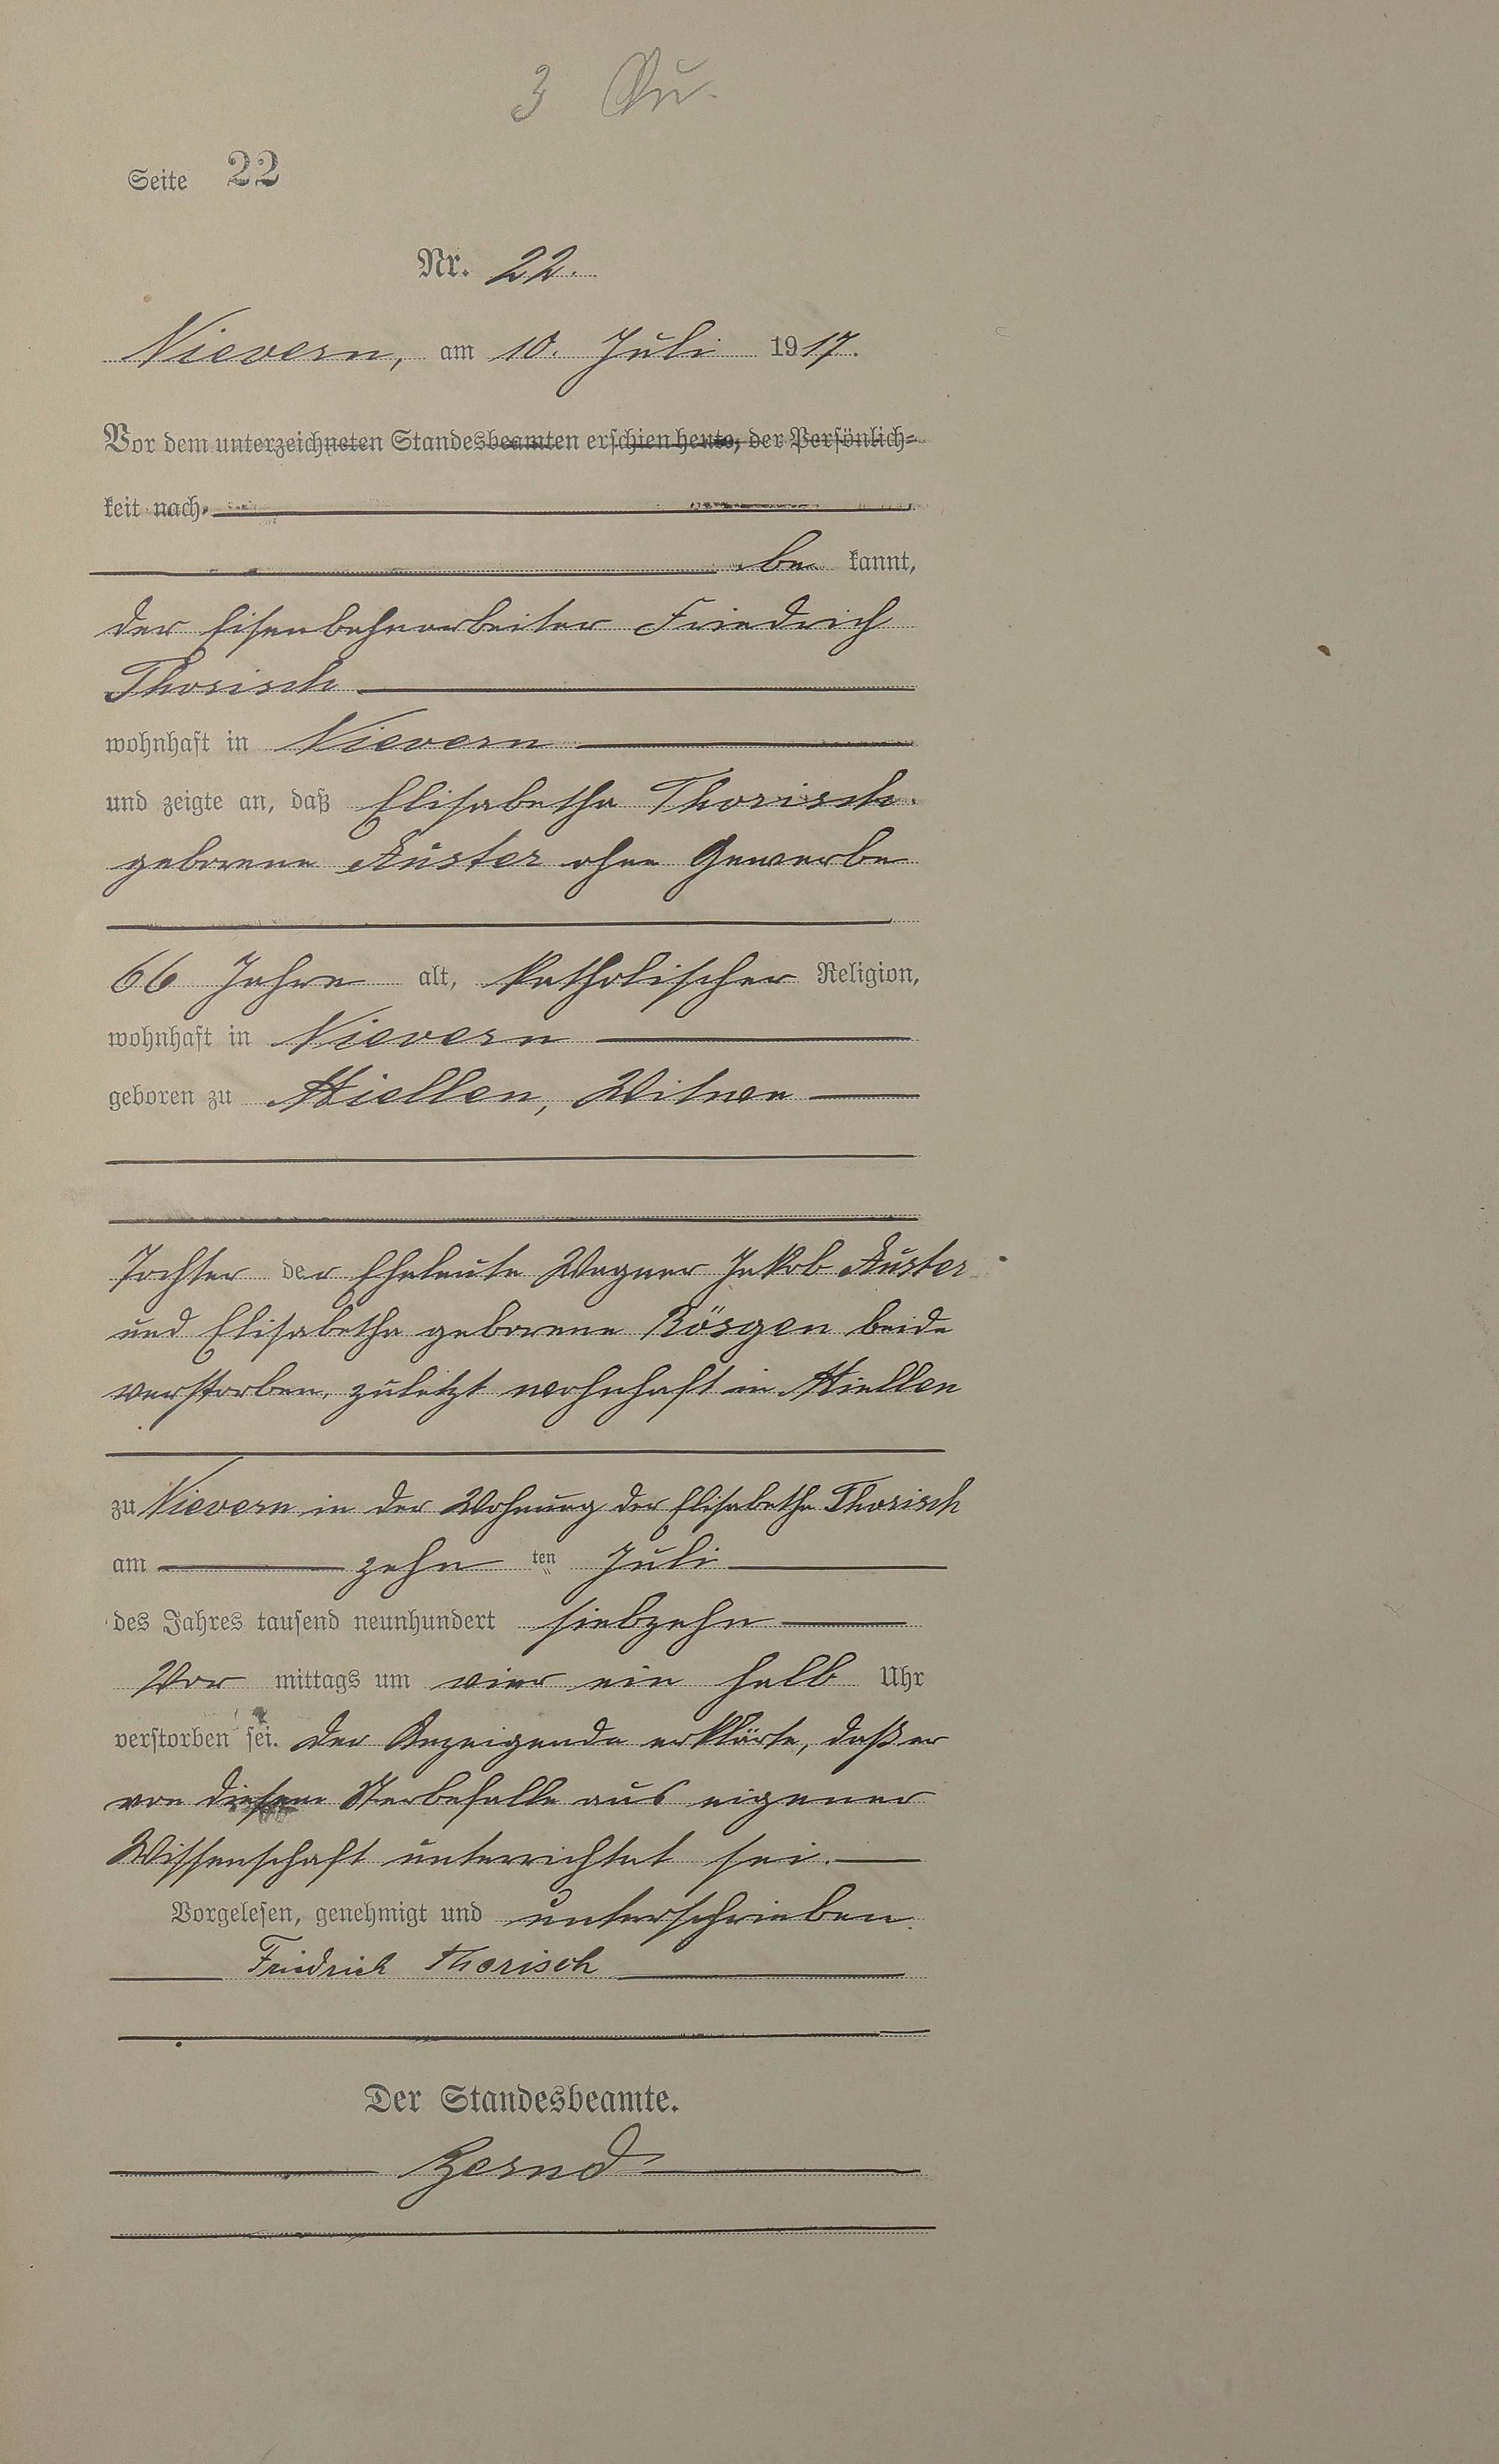 3 Qu.
Seite 22
Nr. 22.
Nievern, am 10. Juli 1917.
Vor dem unterzeichneten Standesbeamten erschien heute, der Persönlich-
keit nach
be kannt,
der Eisenbahnarbeiter Friedrich
Thorisch
wohnhaft in Nievern
und zeigte an, daß Elisabetha Thorisch
geborene Auster ohne Gewerbe
66 Jahre alt, katholischer Religion,
wohnhaft in Nievern
geboren zu Miellen, Witwe
Tochter der Eheleute Wagner Jakob Auster
und Elisabetha geborene Rösgen beide
verstorben, zuletzt wohnhaft in Miellen
zu Nievern in der Wohnung der Elisabetha Thorisch
am zehn ten Juli
des Jahres tausend neunhundert siebzehn
Vor mittags um vier ein halb Uhr
verstorben sei. Der Anzeigende erklärte, daß er
von diesem Sterbefalle aus eigener
Wissenschaft unterrichtet sei.
Vorgelesen, genehmigt und unterschrieben.
Friedrich Thorisch
Der Standesbeamte.